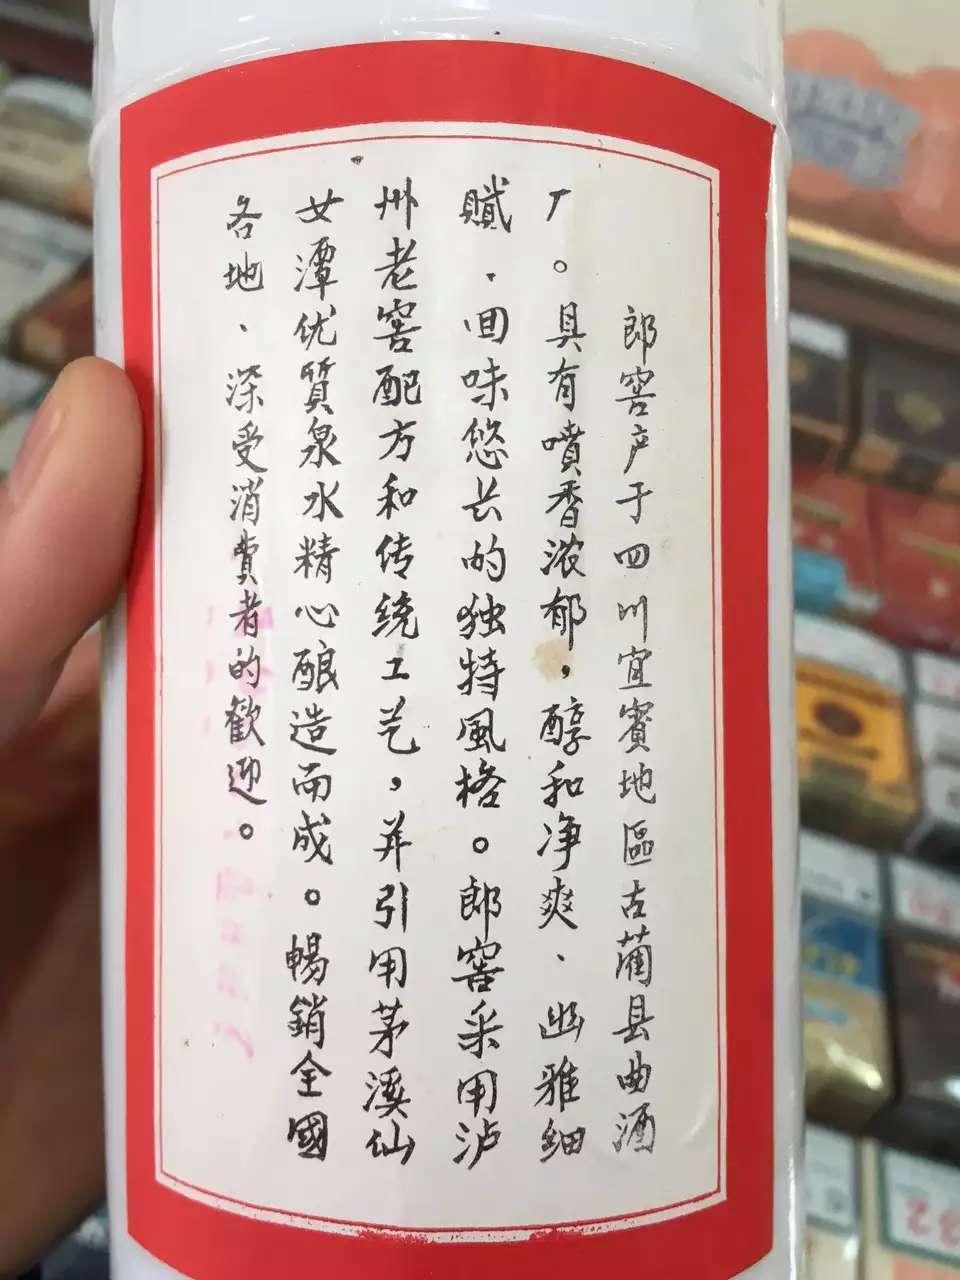 郎窖产于四川宜賓地區古藺县曲酒
厂。具有噴香浓郁，醇和净爽、幽雅细
膩．回味悠长的独特風格。郎窖采用泸
州老窖配方和传统工艺，并引用茅溪仙
女潭优質泉水精心酿造而成。暢銷全國
各地、深受消費者的歡迎。